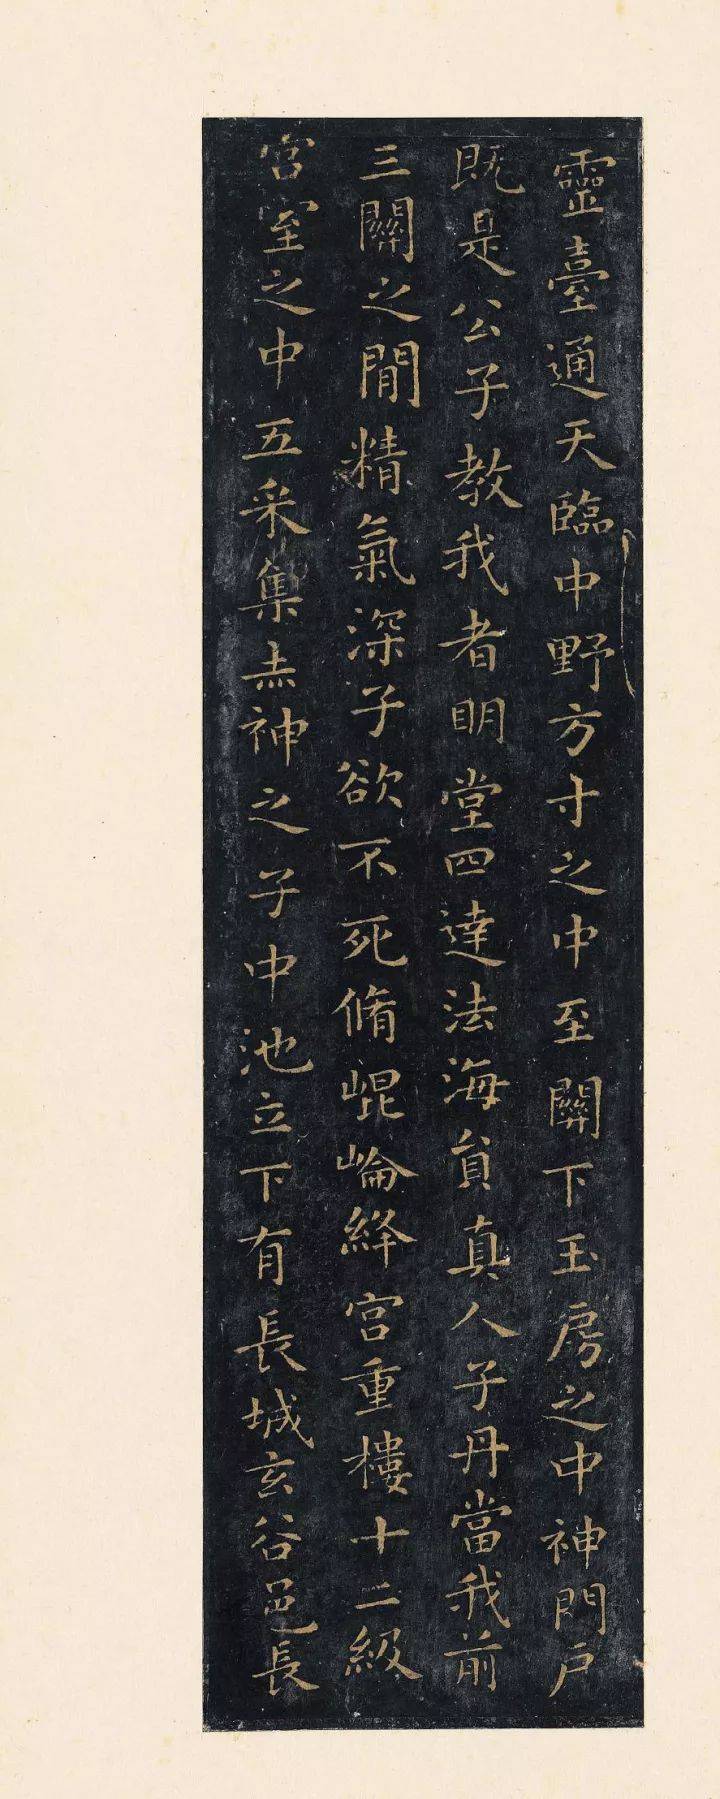 靈臺通天臨中野方寸之中至關下玉房之中神門戶
既是公子教我者明堂四達法海員真人子丹當我前
三關之間精氣深子欲不死脩崐崘絳宮重樓十二級
宮室之中五采集赤神之子中池立下有長城玄谷邑長